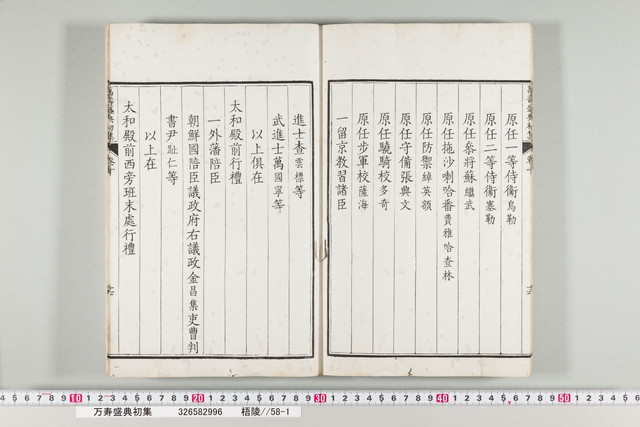 原任一等侍衛烏勒
原任二等侍衛塞勒
原任參將蘇繼武
原任拖沙喇哈番費雅哈查林
原任防禦綽英額
原任守備張典文
原任驍騎校多奇
原任步軍校薩海
一留京教習諸臣
進士查雲標等
武進士萬國寧等
以上俱在
太和殿前行禮
一外藩陪臣
朝鮮國陪臣議政府右議政金昌集吏曹判
書尹趾仁等
以上在
太和殿前西旁班末處行禮
10 20 30 40 50
万寿盛典初集 326582996 梧陵//58-1